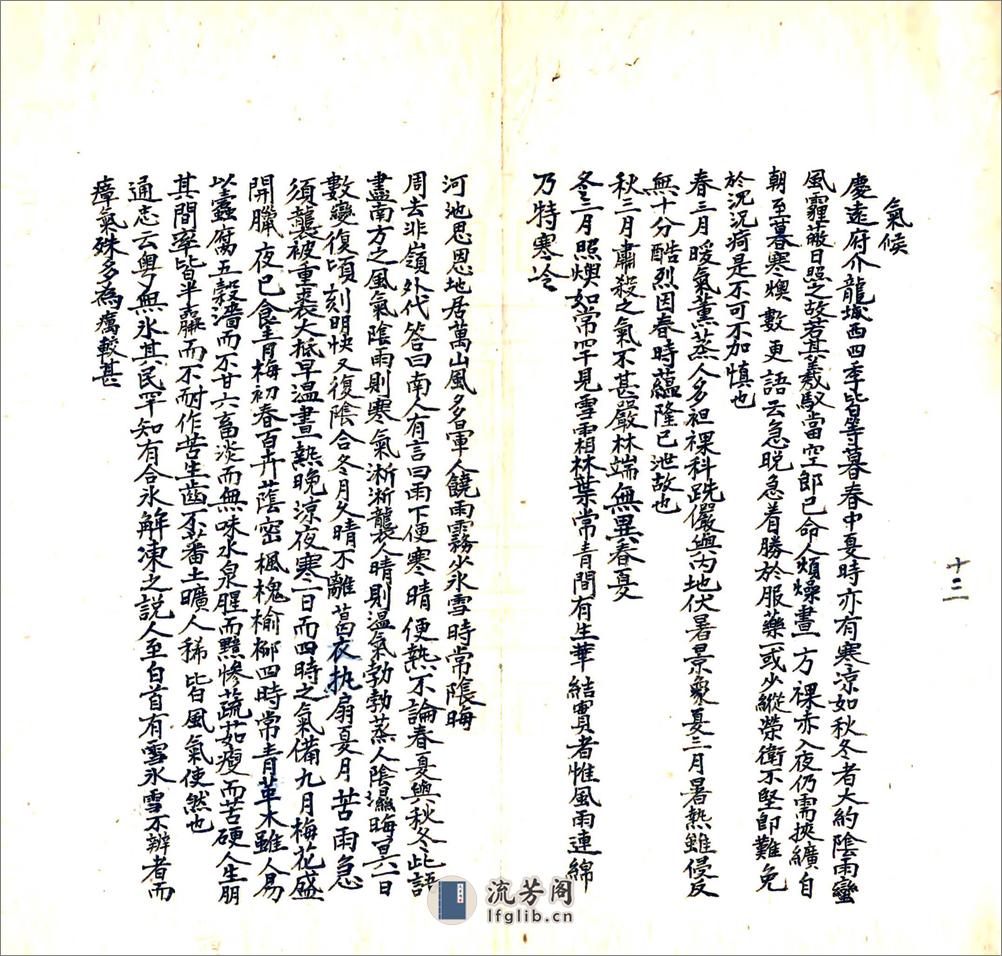 十三
氣候
慶遠府介龍城西四季皆等暮春中夏時亦有寒凉如秋冬者大約陰雨蠻
風霾蔽日照之故若其羲馭當空郎已命人煩燥晝一方裸赤入夜仍需挾纊自
朝至暮寒燠數更語云急脱急着勝於服藥一或少縱榮衛不堅即難免
於沉沉疴是不可不加慎也
春三月暖氣薰蒸人多袒裸科跣儼與内地伏暑景象夏三月暑熱雖侵反
無十分酷烈因春時藴隆已泄故也
秋三月肅殺之氣不甚嚴林端無異春夏
冬三月照燠如常罕見雪霜林葉常青間有生華結實者惟風雨連綿
乃特寒冷
河池思恩地居萬山風多暈人饒雨霧少氷雪時常陰晦
周去非嶺外代答曰南人有言曰雨下便寒晴便熱不論春夏與秋冬此語
盡南方之風氣陰雨則寒氣淅淅襲人晴則温氣勃勃蒸人陰濕晦一日
數變復頃刻明快又復陰合冬月久晴不離葛衣执扇夏月苦雨急
須襲被重裘大抵早温晝熱晚凉夜寒一日而四時之氣備九月梅花盛
開臘夜已食青梅初春百卉蔭密楓槐榆柳四時常青草木雖人易
以蠹腐五穀濇而不甘六畜淡而無味水泉腥而黯慘蔬茹瘦而苦硬人生朋
其間率皆半羸而不耐作苦生齒不蕃土曠人稀皆白風氣使然也
通志云粤無氷其民罕知有合氷解凍之説人至白首有雪氷雪不辨者而
瘴氣殊多為癘較甚
流芳阁
lfglib.cn